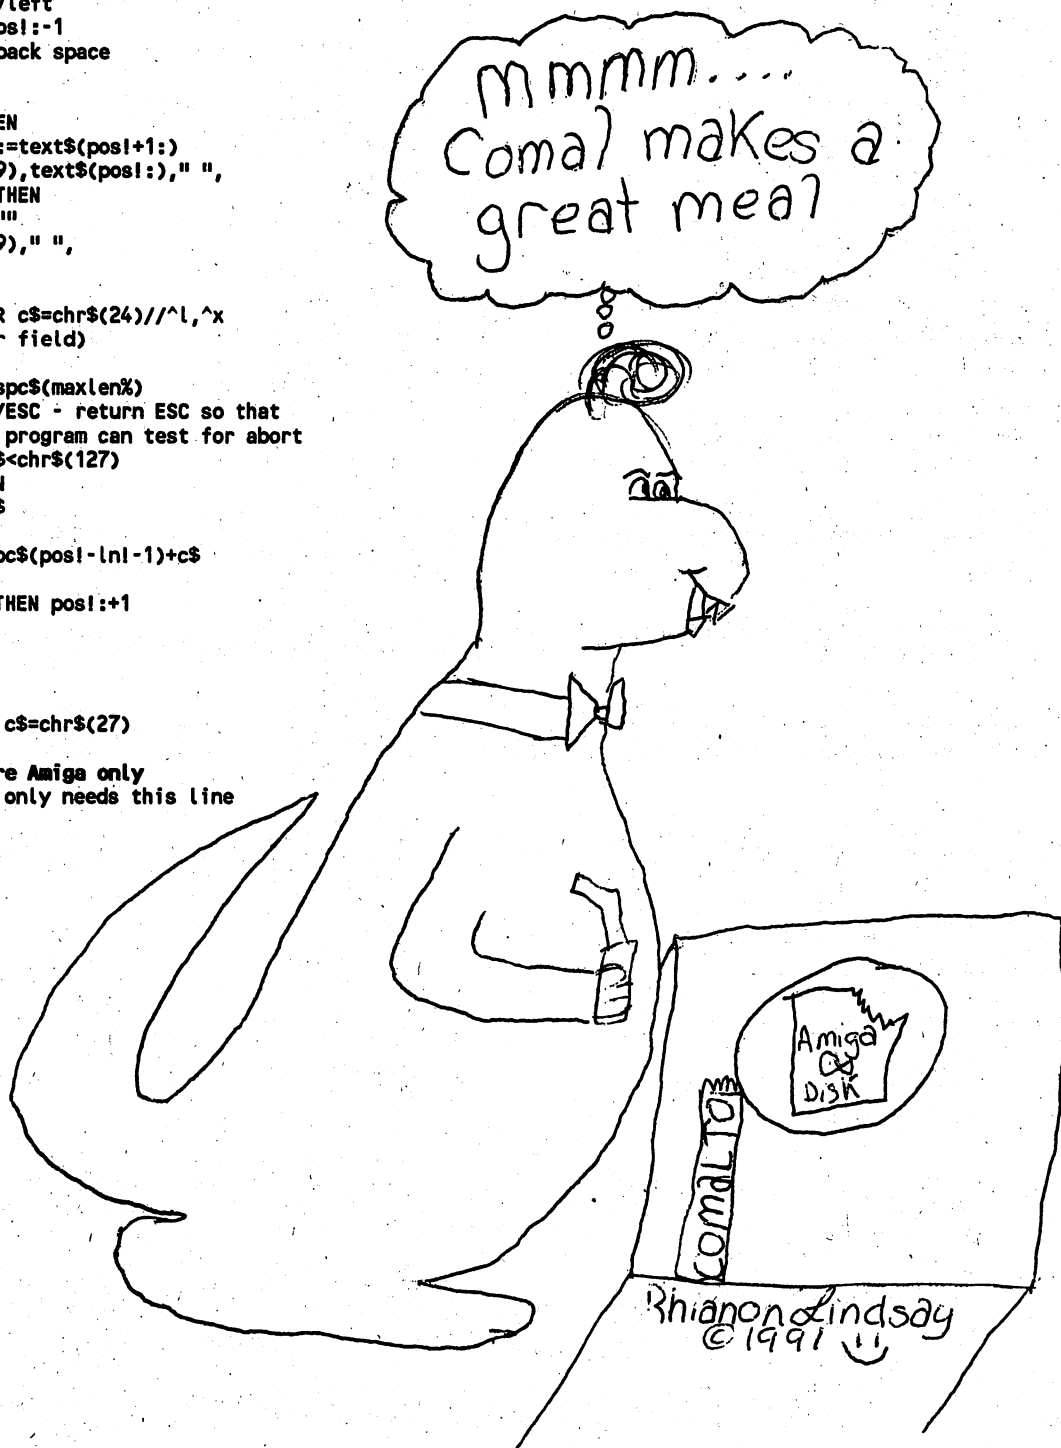 /left
os!:-1
back space
EN
:=text$(pos!+1:)
9),text$(pos!:)," ",
THEN
"'
9)," ",
R c$=chr$(24)//^l,^x
r field)
spc$(maxlen%)
/ESC - return ESC so that
program can test for abort
$<chr$(127)
N
$
pc$(pos!-ln!-1)+c$
THEN pos!:+1
c$=chr$(27)
re Amiga only
only needs this line
mmmm....
Comal makes a
great meal
Amiga
&
Disk
Rhianon Lindsay
© 1991